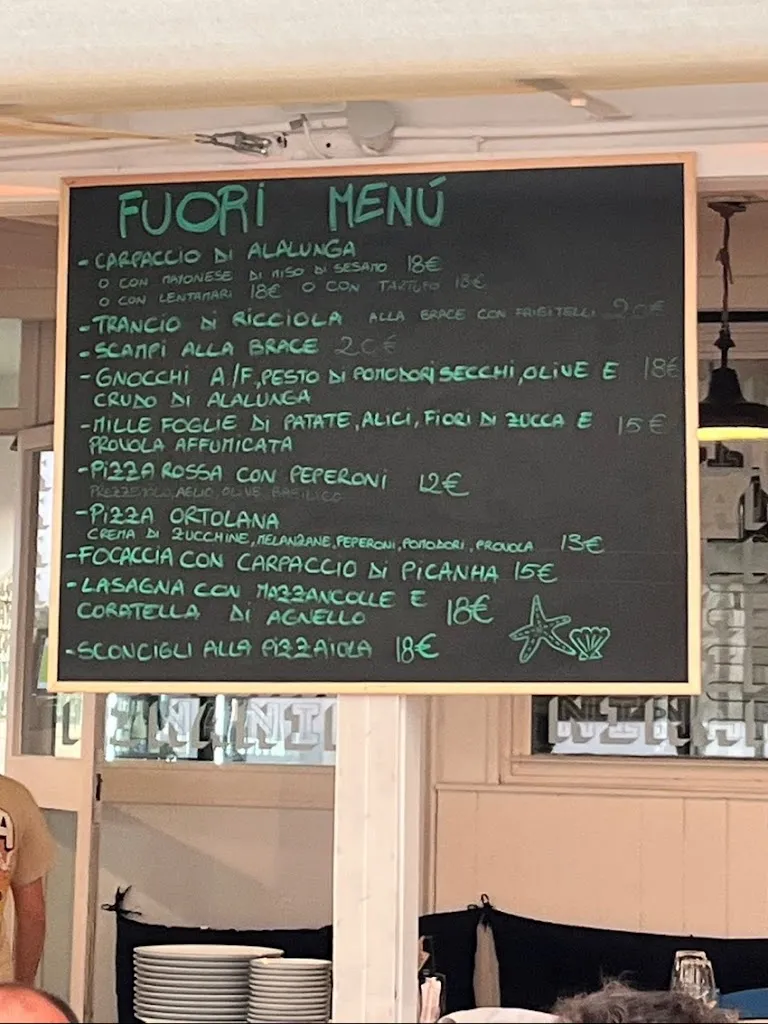 FUORI MENÚ
- CARPACCIO DI ALALUNGA
O CON MAIONESE DI MISO DI SESAMO 18€
O CON LENTAMARI 18€ O CON TARTUFO 18€
- TRANCIO DI RICCIOLA ALLA BRACE CON FRIGITELLI 20€
- SCAMPI ALLA BRACE 20€
- GNOCCHI A/F, PESTO DI POMODORI SECCHI, OLIVE E 18€
CRUDO DI ALALUNGA
- MILLE FOGLIE DI PATATE, ALICI, FIORI DI ZUCCA E 15€
PROVOLA AFFUMICATA
- PIZZA ROSSA CON PEPERONI 12€
AGLIO, OLIVE BASILICO
- PIZZA ORTOLANA
CREMA DI ZUCCHINE, MELANZANE, PEPERONI, POMODORI, PROVOLA 13€
- FOCACCIA CON CARPACCIO DI PICANHA 15€
- LASAGNA CON MAZZANCOLLE E
CORATELLA DI AGNELLO 18€
- SCONCIGLI ALLA PIZZAIOLA 18€